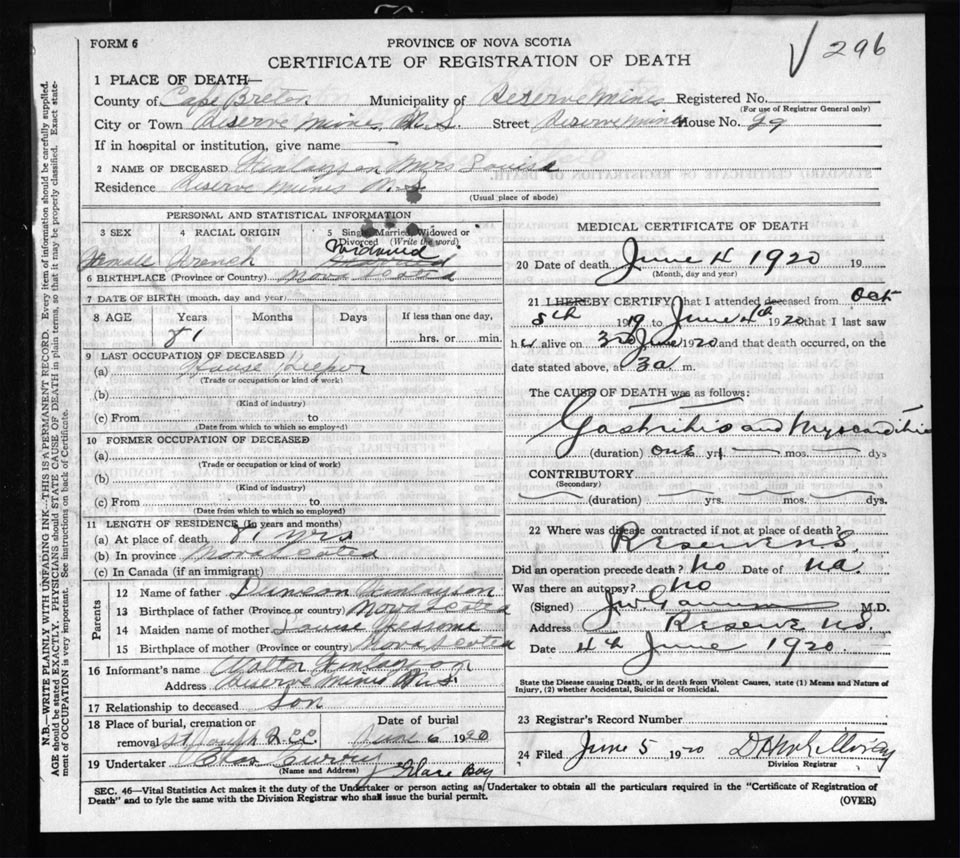 FORM 6
PROVINCE OF NOVA SCOTIA
CERTIFICATE OF REGISTRATION OF DEATH
√ 296
1 PLACE OF DEATH—
County of Cape Breton Municipality of Reserve Mines Registered No.
(For use of Registrar General only)
City or Town Reserve Mines, N.S. Street Reserve Mines House No. 29
If in hospital or institution, give name —
2 NAME OF DECEASED Finlayson Mrs Louise
Residence Reserve Mines N.S
(Usual place of abode)
PERSONAL AND STATISTICAL INFORMATION
3 SEX 4 RACIAL ORIGIN 5 Single, Married, Widowed or Divorced (Write the word)
Female French Widowed
6 BIRTHPLACE (Province or Country) Nova Scotia
7 DATE OF BIRTH (month, day and year)
8 AGE Years Months Days If less than one day,
81 hrs. or min.
9 LAST OCCUPATION OF DECEASED
(a) House Keeper
(Trade or occupation or kind of work)
(b)
(Kind of industry)
(c) From to
(Date from which to which so employed)
10 FORMER OCCUPATION OF DECEASED
(a)
(Trade or occupation or kind of work)
(b)
(Kind of industry)
(c) From to
(Date from which to which so employed)
11 LENGTH OF RESIDENCE (In years and months)
(a) At place of death 81 yrs
(b) In province Nova Scotia
(c) In Canada (if an immigrant)
Parents
12 Name of father Duncan Finlayson
13 Birthplace of father (Province or country) Nova Scotia
14 Maiden name of mother Louise Jessome
15 Birthplace of mother (Province or country) Nova Scotia
16 Informant's name Walter Finlayson
Address Reserve Mines N.S.
17 Relationship to deceased son
18 Place of burial, cremation or removal St Joseph R.C.C. Date of burial June 6 1920
19 Undertaker Chas Curry
(Name and Address) Glace Bay
MEDICAL CERTIFICATE OF DEATH
20 Date of death June 4 1920 19
(Month, day and year)
21 I HEREBY CERTIFY that I attended deceased from Oct
8th 1919 to June 4th 1920 that I last saw
her alive on 3rd June 1920 and that death occurred, on the
date stated above, a 3 a. m.
The CAUSE OF DEATH was as follows:
Gastritis and Myocarditis
(duration) one yrs. — mos. — dys
CONTRIBUTORY
(Secondary)
(duration) yrs. mos. dys.
22 Where was disease contracted if not at place of death?
Reserve N.S.
Did an operation precede death? no Date of na
Was there an autopsy? no
(Signed) J.W. M.D.
Address Reserve N.S.
Date 4th June 1920.
State the Disease causing Death, or in death from Violent Causes, state (1) Means and Nature of
Injury, (2) whether Accidental, Suicidal or Homicidal.
23 Registrar's Record Number
24 Filed June 5 1920 D H McGillivray
Division Registrar
SEC. 46—Vital Statistics Act makes it the duty of the Undertaker or person acting as Undertaker to obtain all the particulars required in the "Certificate of Registration of
Death" and to fyle the same with the Division Registrar who shall issue the burial permit.
(OVER)
N.B.—WRITE PLAINLY WITH UNFADING INK—THIS IS A PERMANENT RECORD. Every item of information should be carefully supplied.
AGE should be stated EXACTLY. PHYSICIANS should STATE CAUSE OF DEATH in plain terms, so that it may be properly classified. Exact state-
ment of OCCUPATION is very important. See instructions on back of Certificate.